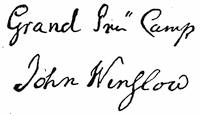 Grand Camp
John Winslow